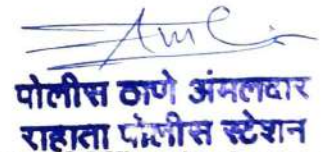 पोलीस ठाणे अंमलदार
राहाता पोलीस स्टेशन